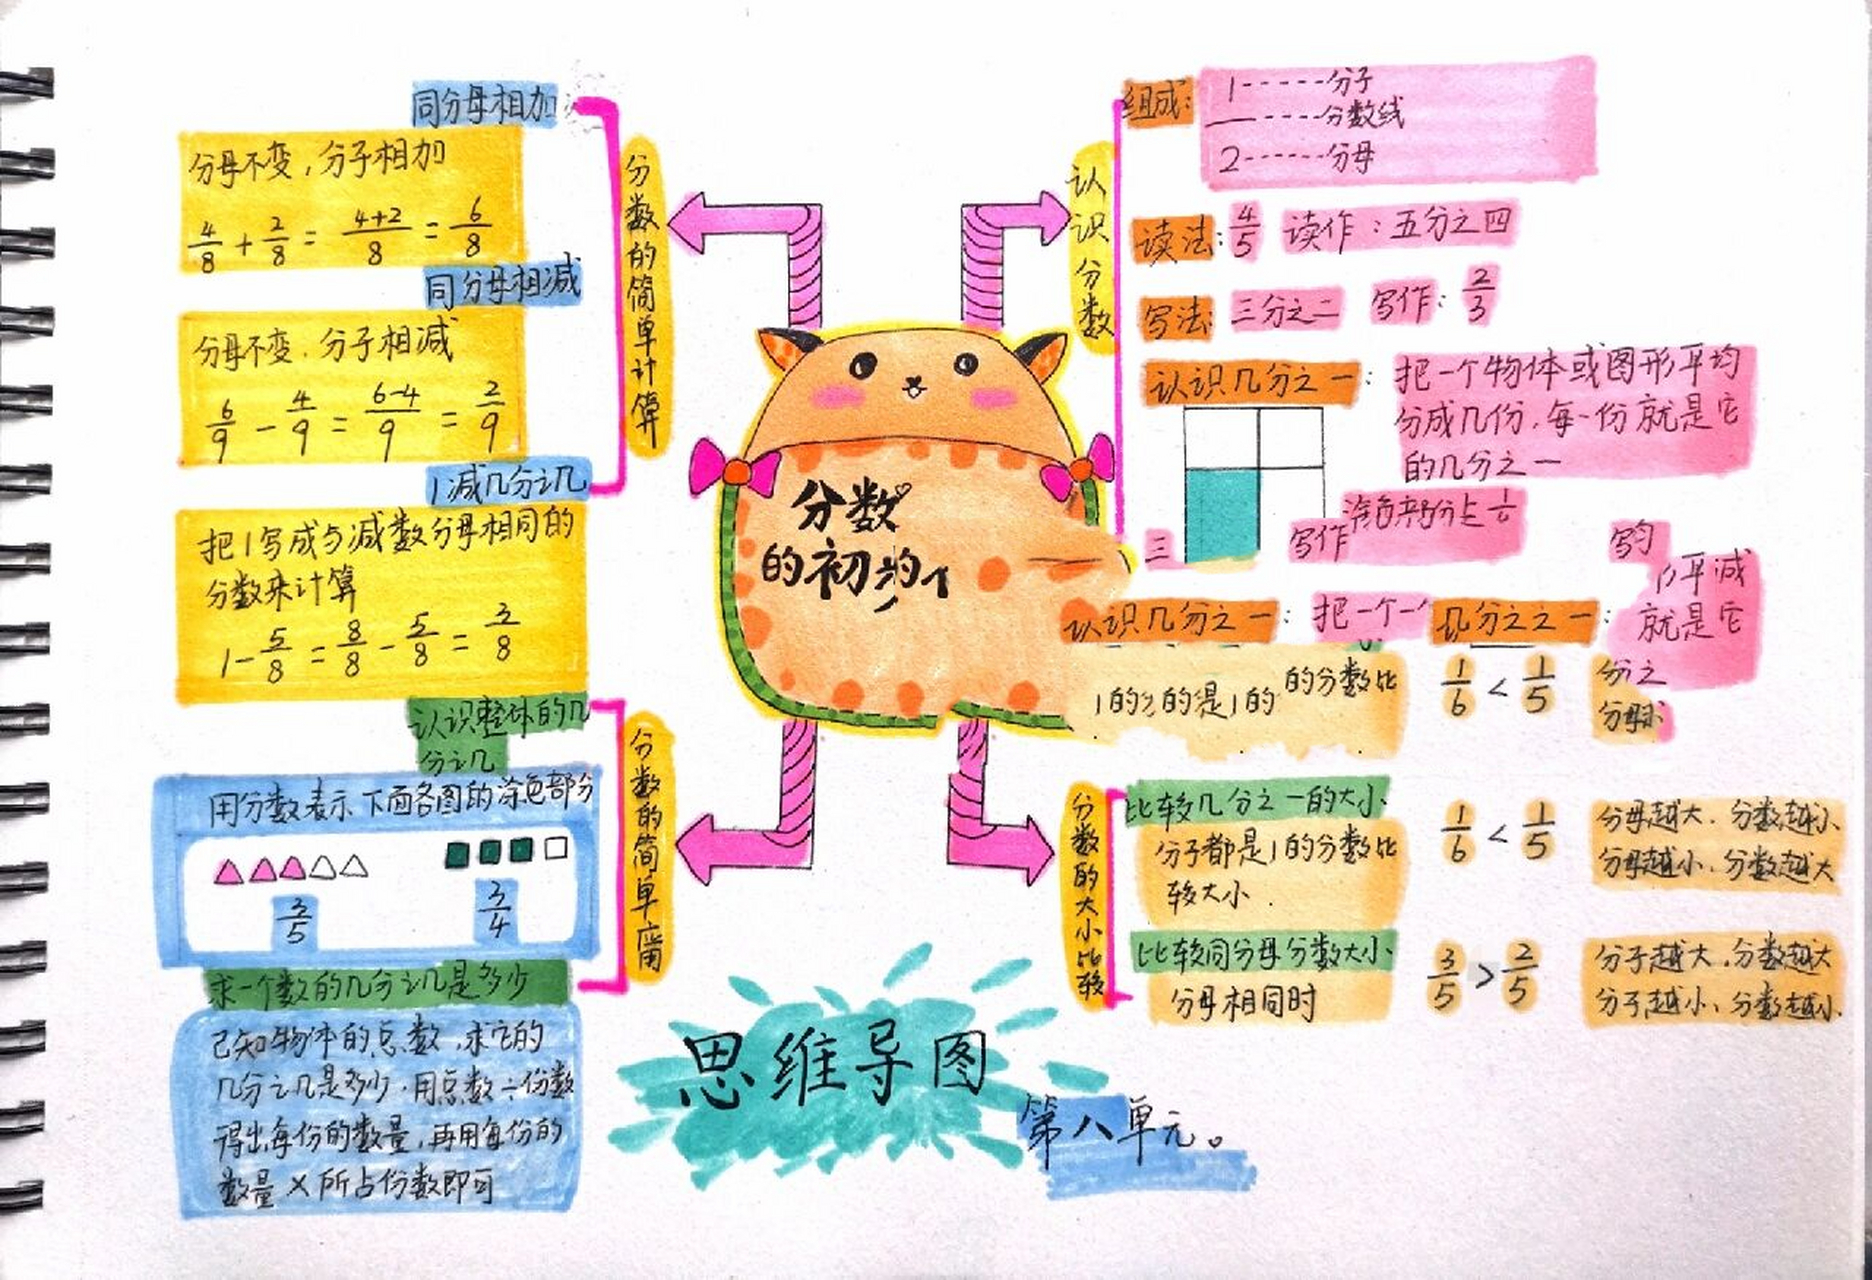 同分母相加
分母不变，分子相加
4/8 + 2/8 = 4+2/8 = 6/8
同分母相减
分母不变．分子相减
6/9 - 4/9 = 6-4/9 = 2/9
1减几分之几
把1写成与减数分母相同的
分数来计算
1 - 5/8 = 8/8 - 5/8 = 3/8
分数的简单计算
认识整体的几
分之几
用分数表示下面各图的涂色部分
3/5 3/4
求一个数的几分之几是多少
已知物体的总数，求它的
几分之几是多少．用总数÷份数
得出每份的数量，再用每份的
数量×所占份数即可
分数的简单应用
分数
的初
思维导图
第八单元。
认识分数
组成：
1------分子
------分数线
2------分母
读法：4/5 读作：五分之四
写法：三分之二 写作：2/3
认识几分之一：
把一个物体或图形平均
分成几份，每一份就是它
的几分之一
涂色部分
三 写作
认识几分之一：把一个 几分之一：
就是它
1的 的是1的 的分数比
1/6 < 1/5
分之
分母
分数的大小比较
比较几分之一的大小
分子都是1的分数比
较大小．
1/6 < 1/5
分母越大．分数越小
分母越小．分数越大
比较同分母分数大小
分母相同时
3/5 > 2/5
分子越大．分数越大
分子越小、分数越小